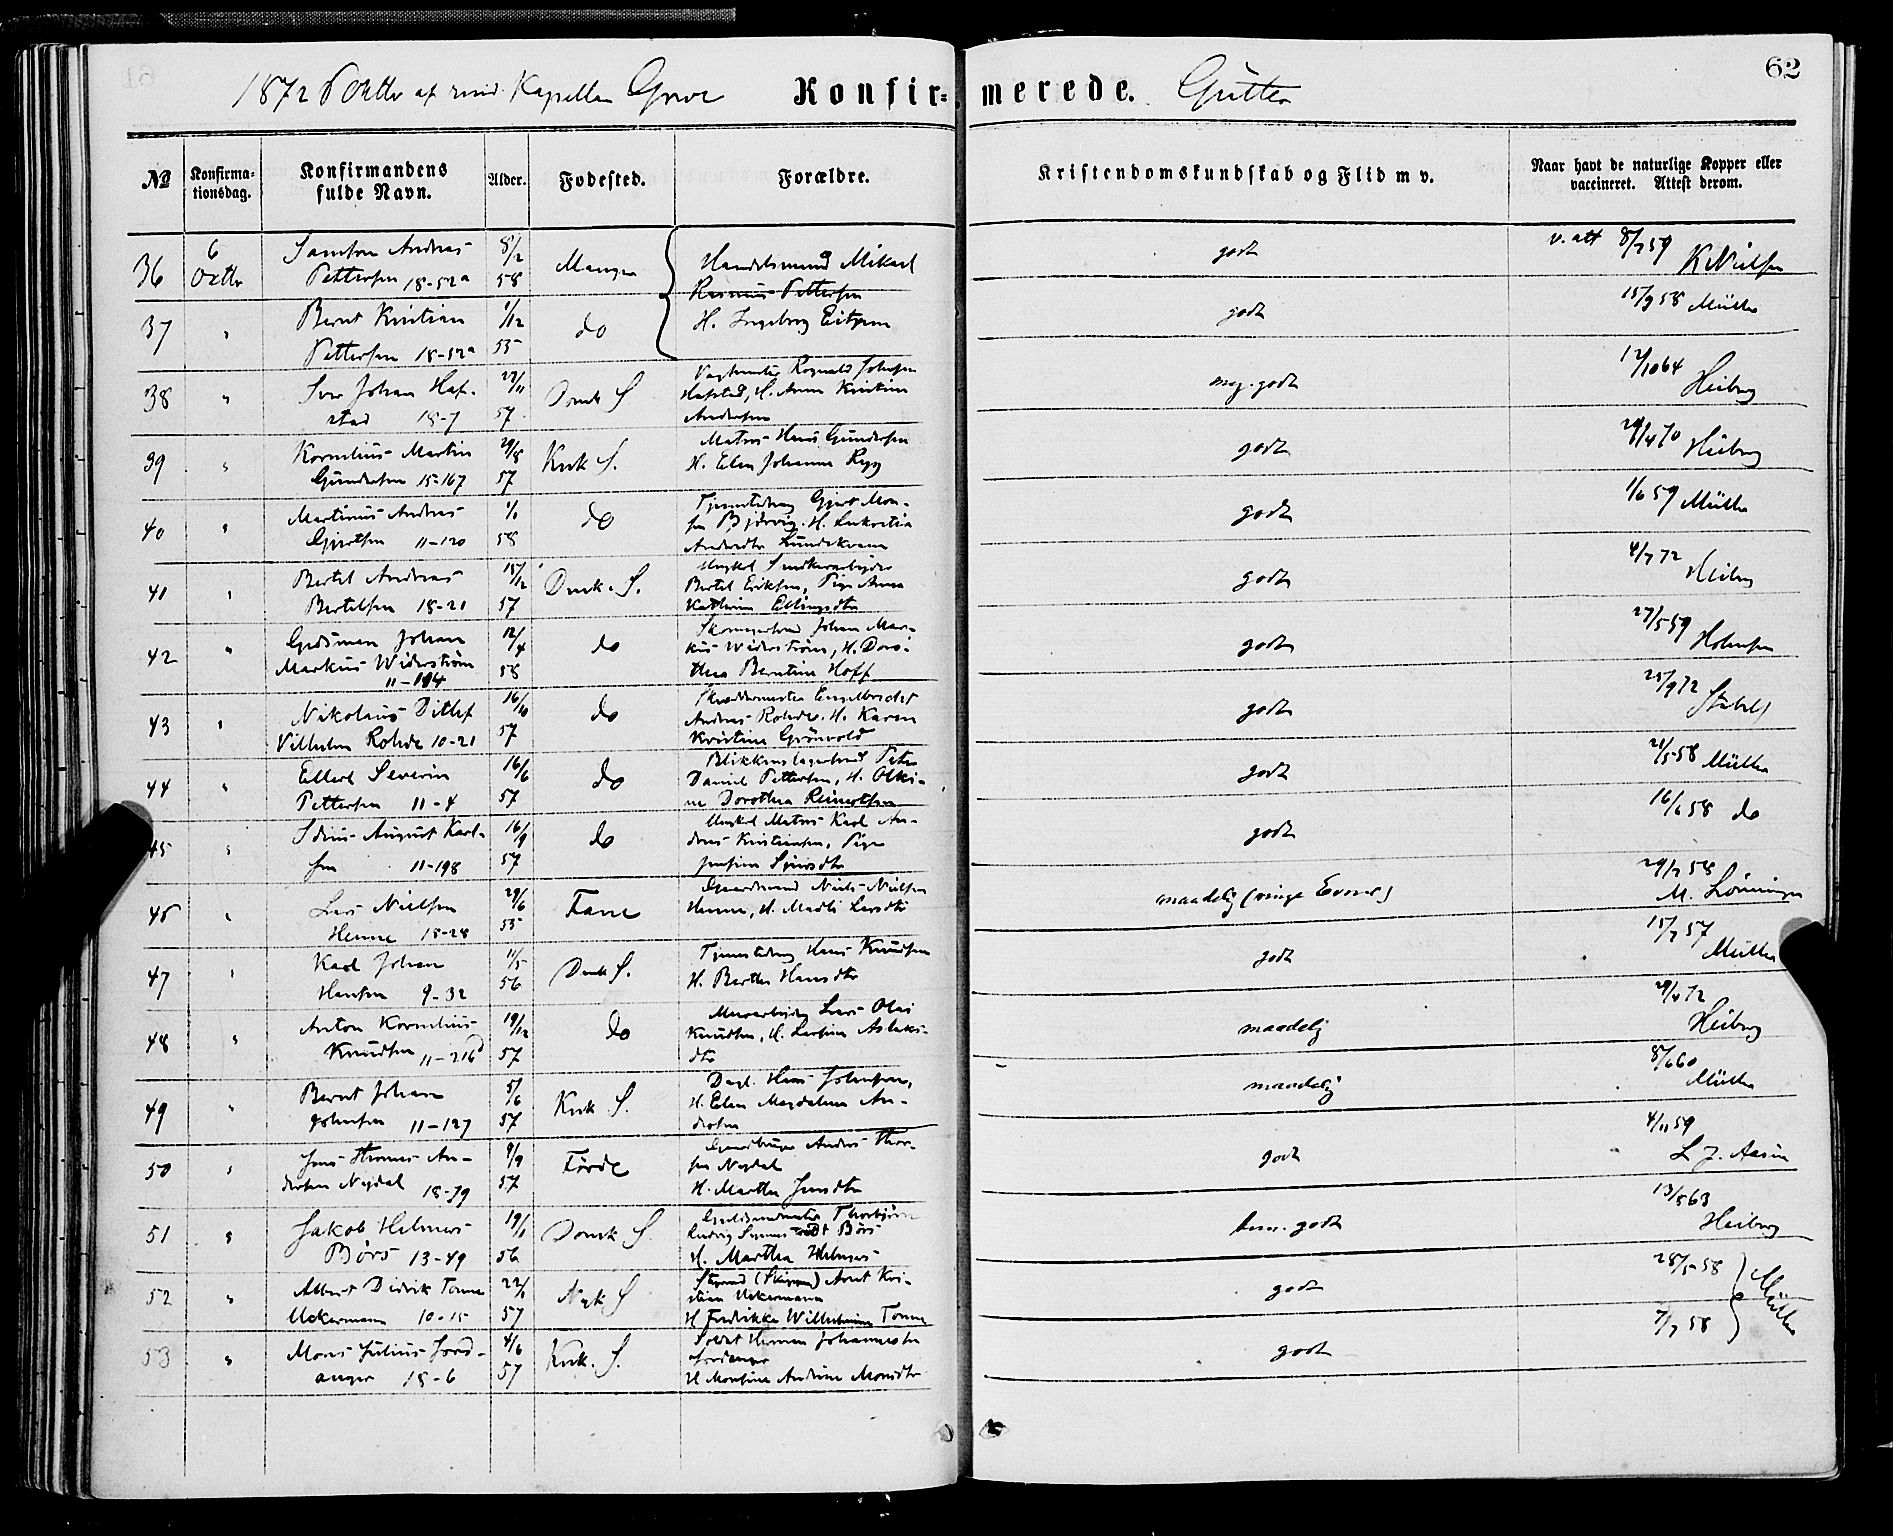 62
1872 6 Oktbr af resid. Kapellan Grove Konfir-merede. Gutter
№ Konfirma-tionsdag. Konfirmandens fulde Navn. Alder. Fødested. Forældre. Kristendomskundskab og Flid m v. Naar havt de naturlige Kopper eller vaccineret. Attest derom.
36 6 Oktbr Samson Andreas 8/2 Manger Handelsmand Mikael godt v. att 8/7 59 K Nielsen
Pettersen 18-52a 58 Rasmus Pettersen
37 " Bernt Kristian 1/12 do H. Ingeborg godt 15/9 58 Müller
Pettersen 18-52a 55
38 " Iver Johan Haf- 27/11 Domk S Rognald Johnsen meg. godt 12/10 64 Heiberg
stad 18-7 57 Hafstad, H. Anna Kristine
Andersen
39 " Kornelius Martin 29/8 Krsk S. Matros Hans Gundersen godt 29/4 70 Heiberg
Gundersen 15-167 57 H. Elen Johanna Rygg
40 " Martinus Andreas do Gjert Mon- godt 1/6 59 Müller
Gjertsen 11-120 58 sen H.
Andersdtr
41 " Bertel Andreas 15/12 Domk. S. Ungkarl godt 4/7 72 Heiberg
Bertelsen 18-21 57 Bertel Eriksen, Pige Anna
Kathrine Ellingsdtr
42 " Johan 12/4 do Johan Mar- godt 27/5 59 Holmsen
Markus Widerstrøm 58 kus Widerstrøm, H. Doro-
11-194 thea Berntine Hoff
43 " Nikolaus Ditlef 16/10 do Skræddermester Engelbrecht godt 25/9 72
Vilhelm Rohde 10-21 57 Andreas Rohde. H. Karen
Kristine Grönvold
44 " Ellert Severin 16/6 do Blikkenslagersvend Peter godt 21/5 58 Müller
Pettersen 11-4 57 Daniel Pettersen, H. Olki-
ne Dorothea Reinertsen
45 " August Karl- 16/9 do Ungkarl Matros Karl An- godt 16/6 58 do
sen 11-198 57 dreas Kristiansen, Pige
Sjursdtr
46 " Lars Nielsen 29/6 Fane Gaardmand Niels Nielsen maadelig (ringe Evner) 29/7 58
Henne 18-28 55 H. Madli Larsdtr M. Lönningen
47 " Karl Johan 11/5 Domk S. Hans Knudsen godt 15/7 57 Müller
Hansen 9-32 56 H. Berthe Hansdtr
48 " Anton Kornelius 19/12 do Murarbeider Lars Olai maadelig 29/4 72 Heiberg
Knudsen 11-216d 57 Knudsen, H. Aslaks-
dtr
49 " Bernt Johan 5/6 Krsk S. Dagl. Hans Johnsen, maadelig 8/6 60 Müller
Johnsen 11-127 57 H. Elen Magdalena An-
dersen
50 " Jens Thomas An- 9/9 Førde Gaardbruger Anders Thor- godt 4/11 59
dersen Nydal 18-79 57 sen Nydal L J. Aasen
H. Marthe Jensdtr
51 " Jakob Helmers 19/1 Domk S. Thorbjørn godt 13/8 63 Heiberg
Börs 13-49 56 Ludvig Börs
H. Martha Helmers
52 " Albert Didrik Tonne 22/1 Nyk S Arnt Kri- godt 28/5 58 Müller
Uckermann 10-15 57 stian Uckermann
H Fredrikke Wilhelmine Tonne
53 " Mons Julius Jord- 4/6 Krsk. S. Soldat Herman Johannesen godt 7/7 58
anger 18-6 57 Jordanger
H Monsine Andrine Monsdtr